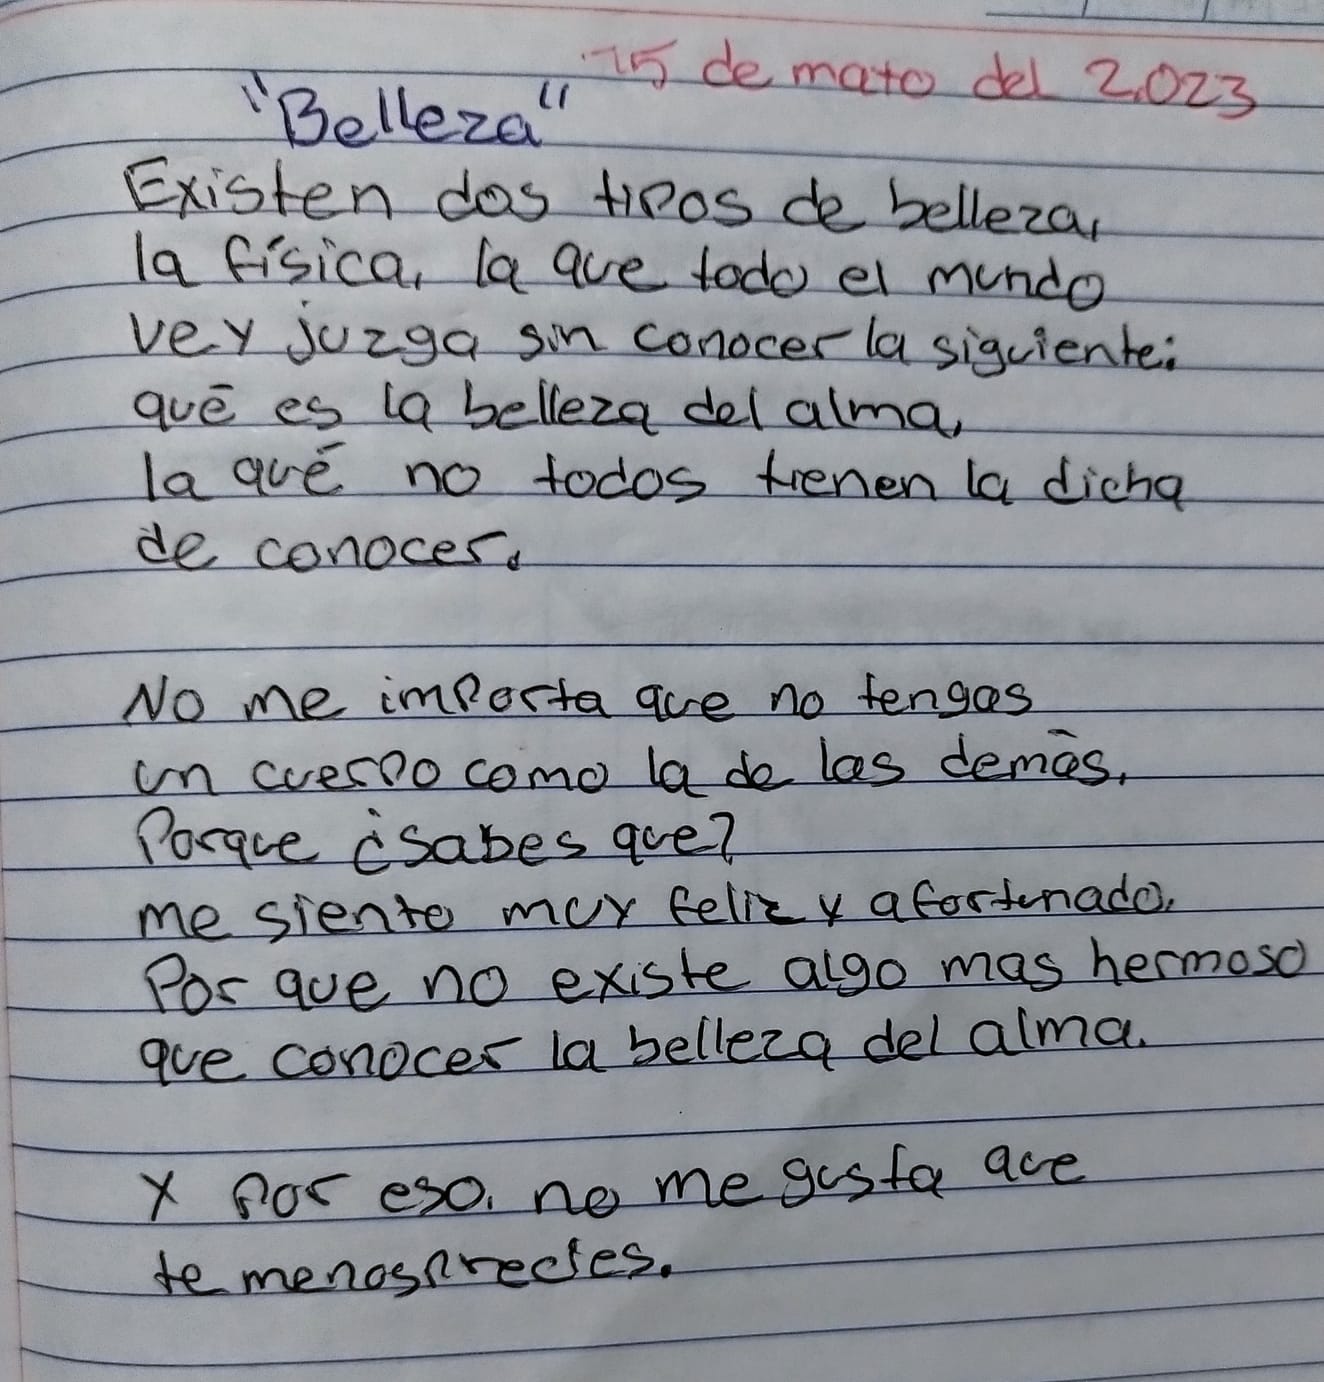 15 de mato del 2.023
"Belleza"
Existen dos tipos de belleza,
la física, la que todo el mundo
ve y juzga sin conocer la siguiente:
qué es la belleza del alma,
la qué no todos tienen la dicha
de conocer.
No me importa que no tengas
un cuerpo como la de las demás,
Porque ¿sabes que?
me siento muy feliz y afortunado,
Por que no existe algo mas hermoso
que conocer la belleza del alma.
Y Por eso, no me gusta que
te menosprecies.